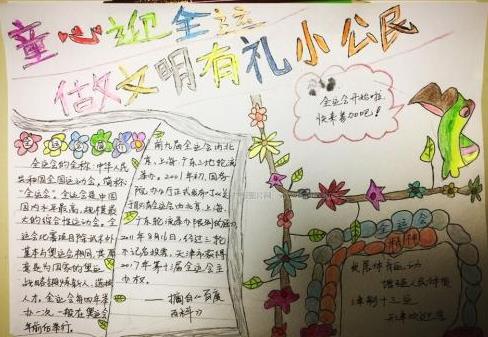 童心迎全运
做文明有礼小公民
全运会开始啦
快来参加吧!
全运会简介
全运会的全称:中华人民
共和国全国运动会,简称
"全运会",全运会是中国
国内水平最高、规模最
大的综合性运动会。全
运会比赛项目除武术外
基本与奥运会相同,其原
意是为国家的奥运
战略锻炼新人、选拔
人才。全运会每四年举
办一次,一般在奥运会
年前后举行。
前九届全运会由北
京、上海、广东三地轮流
举办。2001年初,国务
院办公厅正式发布
全运会由北京、上海、
广东轮流举办限制
2011年8月16日,经过三轮
不记名投票,天津市获得
2017年第十三届全运会主
办权。
——摘自《百度
百科》
全运会
精神
发展体育运动
增强人民体质
津彻十三运
天津欢迎您